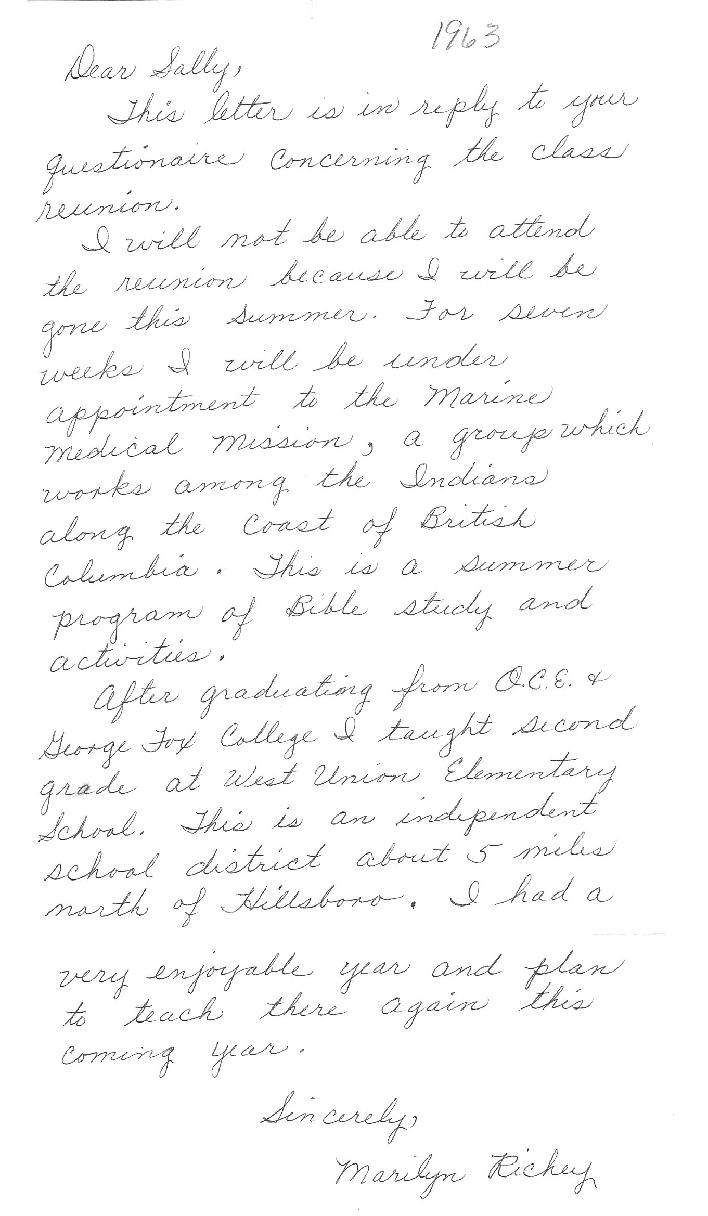 1963
Dear Sally,
This letter is in reply to your
questionaire concerning the class
reunion.
I will not be able to attend
the reunion because I will be
gone this summer. For seven
weeks I will be under
appointment to the Marine
Medical Mission, a group which
works among the Indians
along the coast of British
Columbia. This is a summer
program of Bible study and
activities.
After graduating from O.C.E. &
George Fox College I taught second
grade at West Union Elementary
School. This is an independent
school district about 5 miles
north of Hillsboro. I had a
very enjoyable year and plan
to teach there again this
coming year.
Sincerely,
Marilyn Richey